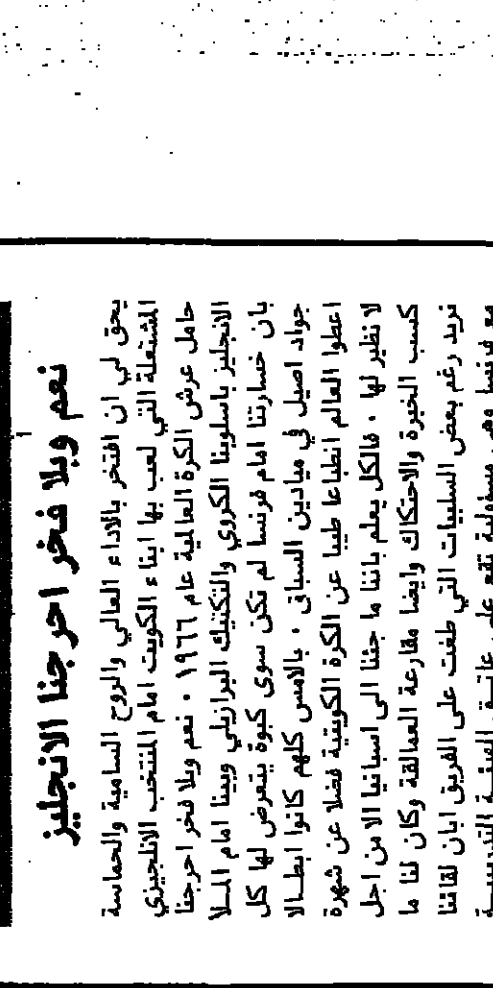 نعم وبلا فخر احرجنا الانجليز
يحق لي ان افتخر بالاداء العالي والروح السامية والحماسة
المشتعلة التي لعب بها ابناء الكويت امام المنتخب الانجليزي
حامل عرش الكرة العالمية عام ١٩٦٦ . نعم وبلا فخر احرجنا
الانجليز باسلوبنا الكروي والتكنيك البرازيلي وبينا امام المـلا
بان خسارتنا امام فرنسا لم تكن سوى كبوة يتعرض لها كل
جواد اصيل في ميادين السباق . بالامس كلهم كانوا ابطـالا
اعطوا العالم انطباعا طيبا عن الكرة الكويتية فضلا عن شهرة
لا نظير لها . فالكل يعلم باننا ما جئنا الى اسبانيا الا من اجل
كسب الخبرة والاحتكاك وايضا مقارعة العمالقة وكان لنا ما
نريد رغم بعض السلبيات التي طغت على الفريق ابان لقائنا
مع فرنسا وهي مسؤولية تقع على عاتـق